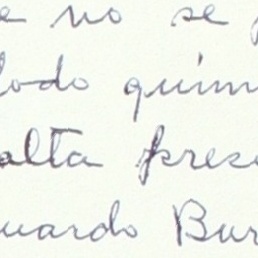 e no se p
lodo quím
alta pres
uardo Bur